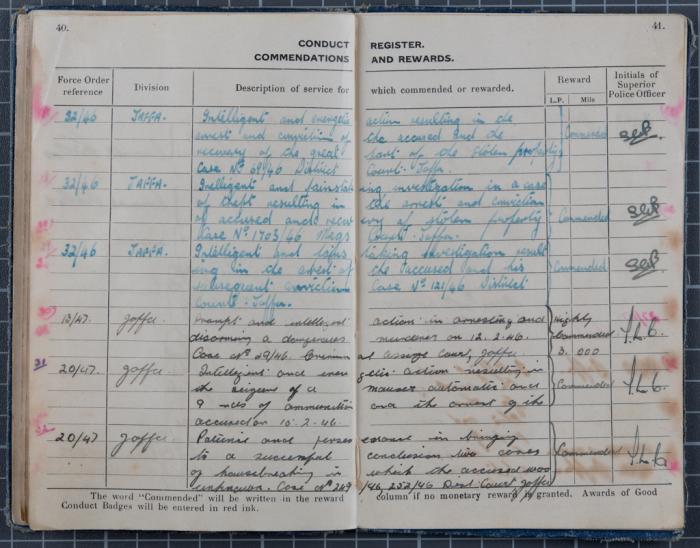 40.
41.
CONDUCT REGISTER.
COMMENDATIONS AND REWARDS.
Force Order reference
Division
Description of service for which commended or rewarded.
Reward
L.P. Mils
Initials of Superior Police Officer
32/46 JAFFA. Intelligent and energetic action resulting in the
arrest and conviction of the accused and the
recovery of the great part of the stolen property
Case No 69/40 District Court Jaffa.
Commended
32/46 JAFFA. Intelligent and painstaking investigation in a case
of theft resulting in the arrest and conviction
of accused and recovery of stolen property
Case No 1703/46 Mags Court. Jaffa.
Commended
32/46 JAFFA. Intelligent and painstaking investigation result
ing in the arrest of the accused and his
subsequent conviction Case No 121/46 District
Court. Jaffa.
Commended
13/47. Jaffa. Prompt and intelligent action in arresting and
disarming a dangerous murderer on 12.2.46.
Case No 29/46. Criminal assize Court, Jaffa
Highly Commended 3.000
31
20/47 Jaffa. Intelligent and energetic action resulting in
the seizure of a mauser automatic and
9 rds of ammunition and the arrest of the
accused on 10.2.46.
Commended
20/47 Jaffa. Patience and perseverance in bringing
to a successful conclusion two cases
of housebreaking in which the accused was
unknown. Case No 249/46, 252/46 Dist. Court Jaffa
Commended
The word "Commended" will be written in the reward column if no monetary reward is granted. Awards of Good
Conduct Badges will be entered in red ink.